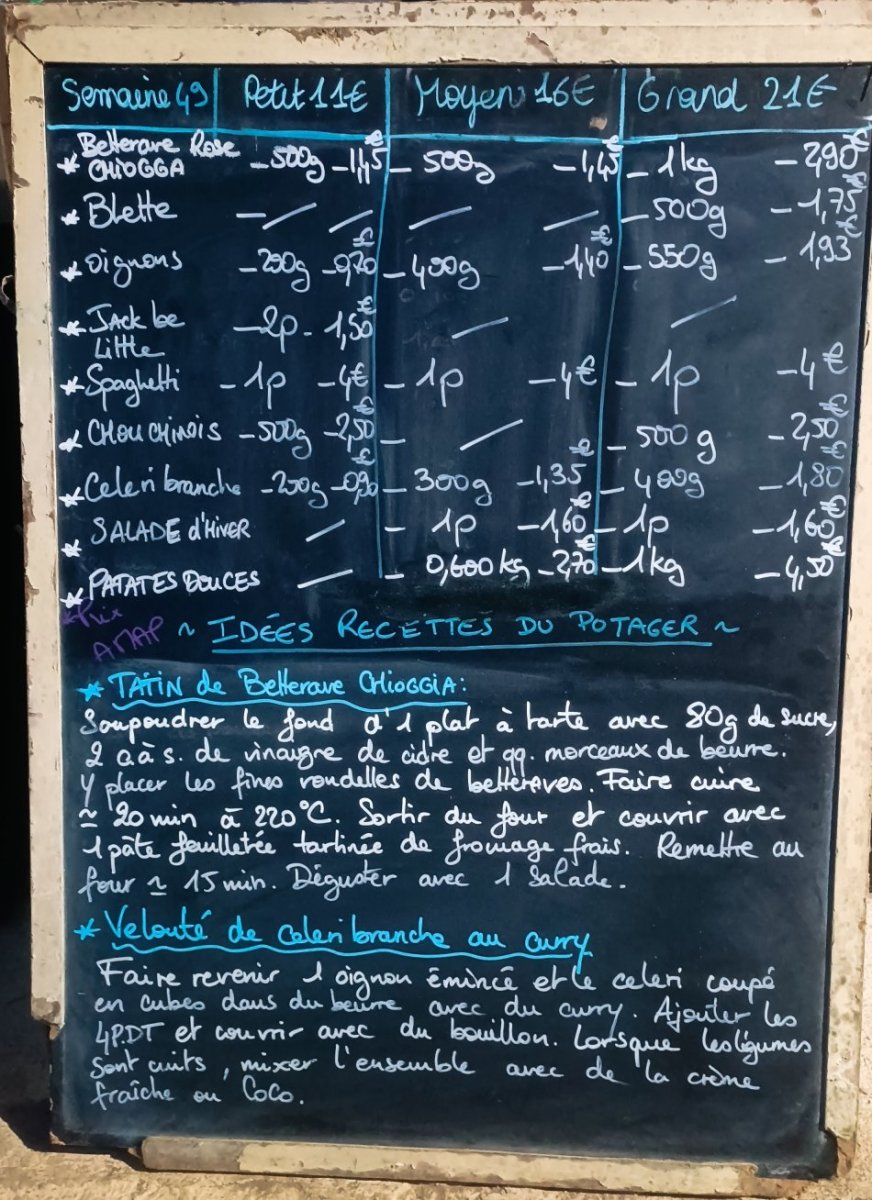 Semaine 49 Petit 11€ Moyen 16€ Grand 21€
* Betterave Rose CHIOGGA - 500g - 1,45€ - 500g - 1,45€ - 1kg - 2,90€
* Blette - / / / / - 500g - 1,75€
* oignons - 200g - 0,70€ - 400g - 1,40€ - 550g - 1,93€
* Jack be Little - 2p - 1,50€ / /
* Spaghetti - 1p - 4€ - 1p - 4€ - 1p - 4€
* CHOU CHINOIS - 500g - 2,50€ - / - 500 g - 2,50€
* Celeri branche - 200g - 0,90€ - 300g - 1,35€ - 400g - 1,80€
* SALADE d'HIVER / - 1p - 1,60€ - 1p - 1,60€
* PATATES DOUCES / - 0,600kg - 2,70€ - 1kg - 4,50€
* Prix
AMAP
~ IDÉES RECETTES DU POTAGER ~
* TATIN de Betterave CHIOGGIA:
Soupoudrer le fond d'1 plat à tarte avec 80g de sucre,
2 c.à s. de vinaigre de cidre et qq. morceaux de beurre.
Y placer les fines rondelles de betteraves. Faire cuire
≃ 20 min à 220°C. Sortir du four et couvrir avec
1 pâte feuilletée tartinée de fromage frais. Remettre au
four ≃ 15 min. Déguster avec 1 Salade.
* Velouté de celeri branche au curry
Faire revenir 1 oignon émincé et le celeri coupé
en cubes dans du beurre avec du curry. Ajouter les
4P.DT et couvrir avec du bouillon. Lorsque les légumes
sont cuits, mixer l'ensemble avec de la crème
fraîche ou CoCo.